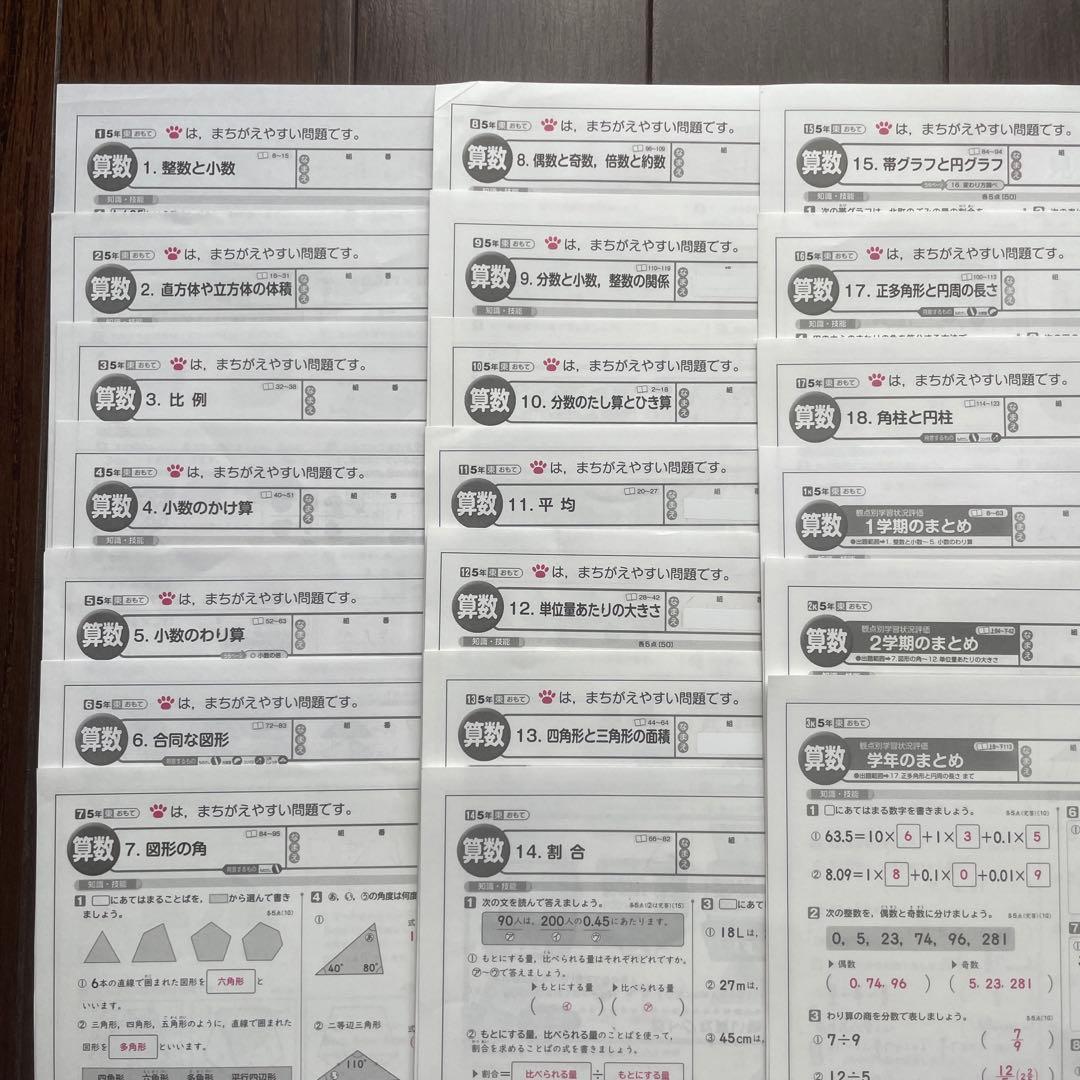 1 5年 東 おもて は，まちがえやすい問題です。
算数 1. 整数と小数 8~15 なまえ 組 番
知識・技能
2 5年 東 おもて は，まちがえやすい問題です。
算数 2. 直方体や立方体の体積 16~31 なまえ 組 番
知識・技能
3 5年 東 おもて は，まちがえやすい問題です。
算数 3. 比例 32~38 なまえ 組 番
4 5年 東 おもて は，まちがえやすい問題です。
算数 4. 小数のかけ算 40~51 なまえ 組 番
知識・技能
5 5年 東 おもて は，まちがえやすい問題です。
算数 5. 小数のわり算 52~63 なまえ 組 番
小数の倍
6 5年 東 おもて は，まちがえやすい問題です。
算数 6. 合同な図形 72~83 なまえ 組 番
用意するもの
7 5年 東 おもて は，まちがえやすい問題です。
算数 7. 図形の角 84~95 なまえ 組 番
用意するもの
知識・技能
1 □にあてはまることばを，から選んで書き
ましょう。 各5点(10)
① 6本の直線で囲まれた図形を 六角形 と
いいます。
② 三角形，四角形，五角形のように，直線で囲まれた
図形を 多角形 といいます。
四角形 六角形 多角形 平行四辺形
4 あ，い，うの角度は何度
①
あ
40° 80°
② 二等辺三角形
110°
8 5年 東 おもて は，まちがえやすい問題です。
算数 8. 偶数と奇数，倍数と約数 96~109 なまえ 組 番
知識・技能
9 5年 東 おもて は，まちがえやすい問題です。
算数 9. 分数と小数，整数の関係 110~119 なまえ
知識・技能
10 5年 東 おもて は，まちがえやすい問題です。
算数 10. 分数のたし算とひき算 2~18 なまえ 組
11 5年 東 おもて は，まちがえやすい問題です。
算数 11. 平均 20~27 なまえ 組
12 5年 東 おもて は，まちがえやすい問題です。
算数 12. 単位量あたりの大きさ 28~42 なまえ 組
知識・技能 各5点[50]
13 5年 東 おもて は，まちがえやすい問題です。
算数 13. 四角形と三角形の面積 44~64 なまえ 組
14 5年 東 おもて
算数 14. 割合 66~82 なまえ 組
知識・技能
1 次の文を読んで答えましょう。
90人は，200人の0.45にあたります。
㋐ ㋑ ㋒
① もとにする量，比べられる量はそれぞれどれですか。
㋐~㋒で答えましょう。
▶もとにする量 ▶比べられる量
( ㋑ ) ( ㋐ )
② もとにする量，比べられる量のことばを使って，
割合を求めることばの式を書きましょう。
▶割合＝ 比べられる量 ÷ もとにする量
3 □にあて
① 18Lは，
② 27mは，
③ 45cmは，
15 5年 東 おもて は，まちがえやすい問題です。
算数 15. 帯グラフと円グラフ 84~94 なまえ 組
16. 変わり方調べ
知識・技能 各5点[50]
16 5年 東 おもて は，まちがえやすい問題です。
算数 17. 正多角形と円周の長さ 100~113 なまえ 組
用意するもの
知識・技能
17 5年 東 おもて は，まちがえやすい問題です。
算数 18. 角柱と円柱 114~123 なまえ 組
用意するもの
1K 5年 東 おもて
観点別学習状況評価 8~63
算数 1学期のまとめ なまえ 組
●出題範囲➡1. 整数と小数~5. 小数のわり算
2K 5年 東 おもて
観点別学習状況評価 上84~下42
算数 2学期のまとめ なまえ 組
●出題範囲➡7. 図形の角~12. 単位量あたりの大きさ
3K 5年 東 おもて
観点別学習状況評価 上8~下113
算数 学年のまとめ なまえ 組
●出題範囲➡17. 正多角形と円周の長さ まで
知識・技能
1 □にあてはまる数字を書きましょう。 各5点(完答)(10)
① 63.5＝10×6＋1×3＋0.1×5
② 8.09＝1×8＋0.1×0＋0.01×9
2 次の整数を，偶数と奇数に分けましょう。 各5点(完答)(10)
0, 5, 23, 74, 96, 281
▶偶数 ▶奇数
( 0, 74, 96 ) ( 5, 23, 281 )
3 わり算の商を分数で表しましょう。 各5点(10)
① 7÷9 ( 7/9 )
② 12÷5
6
7
8